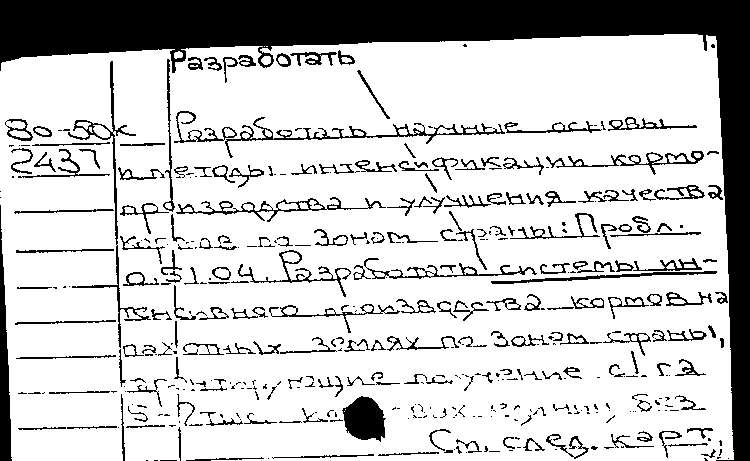 1.
Разработать
80-50к Разработать научные основы
2437 и методы интенсификации кормо-
производства и улучшения качества
кормов по зонам страны: Пробл.
0.51.04. Разработать системы ин-
тенсивного производства кормов на
пахотных землях по зонам страны,
гарантирующие получение с 1 га
5-7 тыс. кормовых единиц без
См. след. карт.